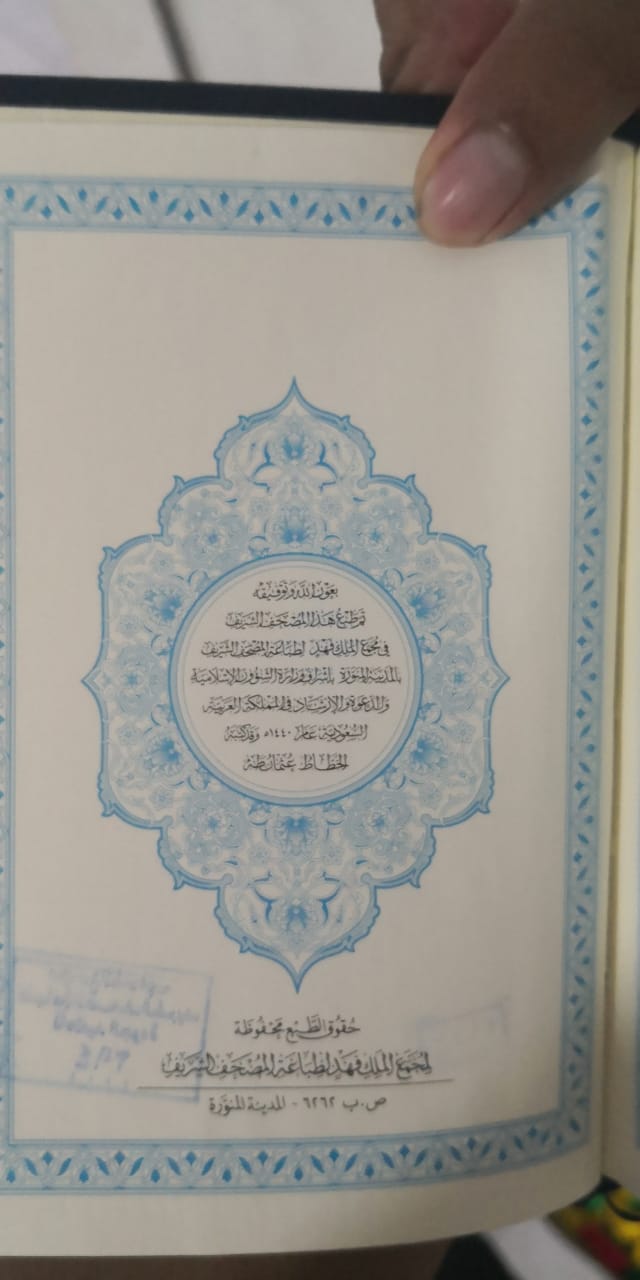 بعون الله وتوفيقه
تم طبع هذا المصحف الشريف
في مجمع الملك فهد لطباعة المصحف الشريف
بالمدينة المنورة بإشراف وزارة الشؤون الإسلامية
والدعوة والإرشاد في المملكة العربية
السعودية عام ١٤٤٠هـ وقد كتبه
الخطاط عثمان طه
حقوق الطبع محفوظة
لمجمع الملك فهد لطباعة المصحف الشريف
ص.ب ٦٢٦٢ - المدينة المنورة